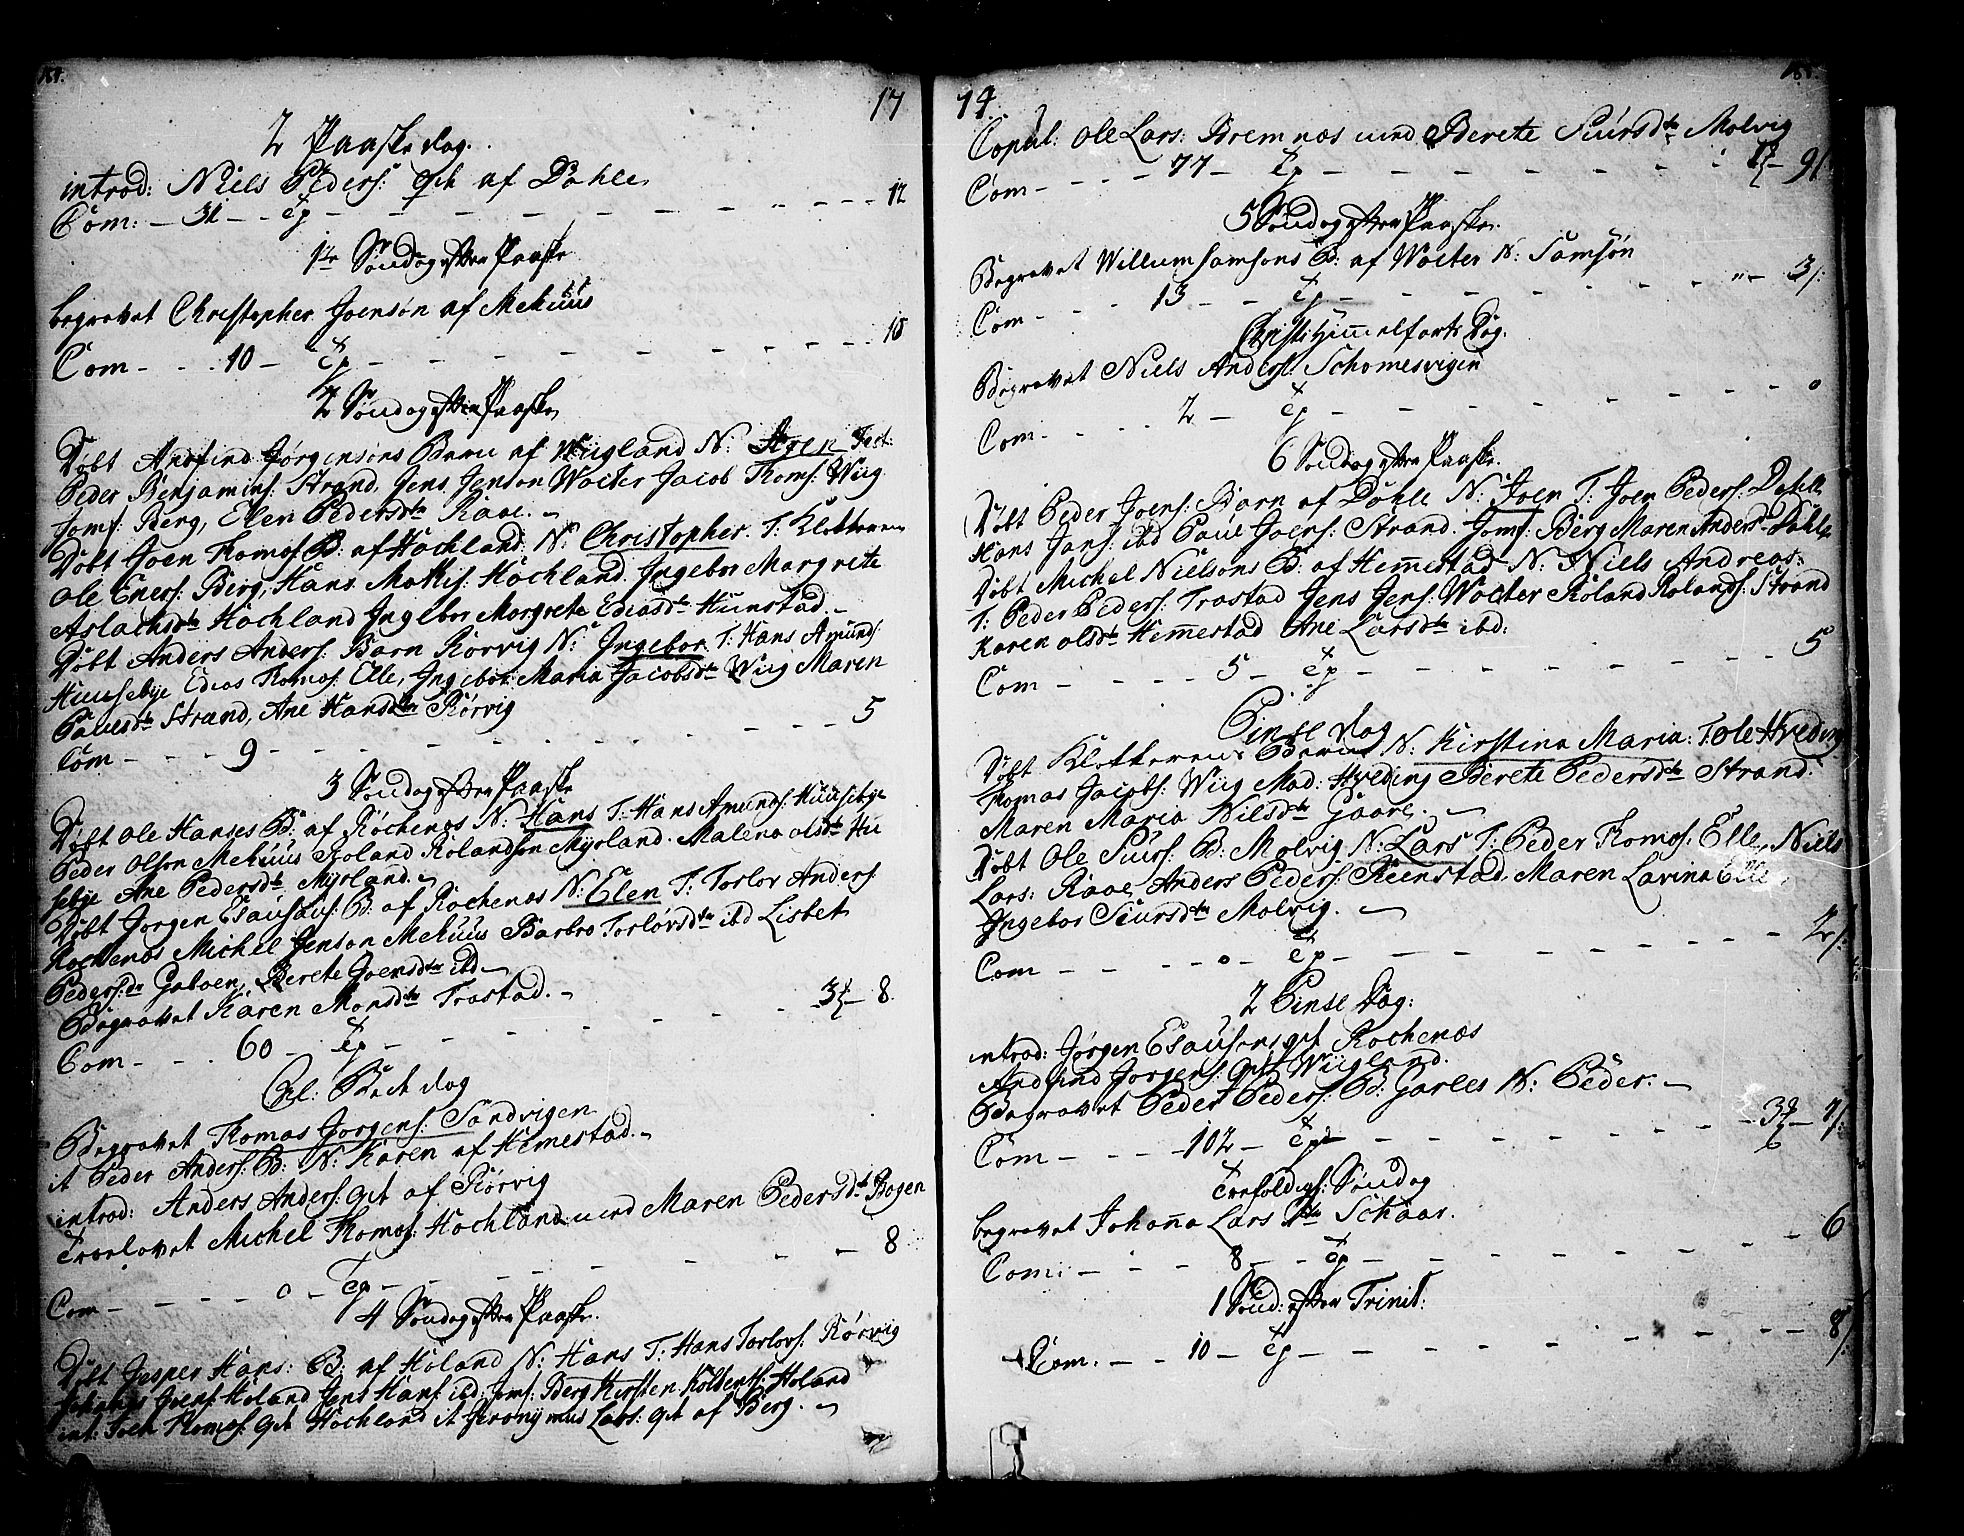 17
2 Paaske dag.
introd: Niels Peders: qvt af Dahle
Com: — 31 — — — 12
1te Søndag efter Paaske
begravet Christopher Joensøn af Mekuus
Com — 10 — — 18
2 Søndag efter Paaske
Døbt Andfind Jørgensøns Barn af Wiigland N: Test:
Peder Benjamins: Strand, Jens Jenson Wolter Jacob Thoms: Wiig
Jomf: Berg, Elen Pedersdtr Raae.
Døbt Joen Thomos: B: af Hochland N: Christopher. T: Klokkeren
Ole Eners: Berg, Hans Mathis: Hochland. Ingebor Margrete
Aslachsdtr Hochland Ingebor Margrete Ediasdtr Hunstad.
Døbt Anders Anders: Barn Rørvig N: Ingebor. T: Hans Amunds:
Huusebye Edias Thomos: Elle, Ingebor Maria Jacobsdtr Wiig Maren
Paulsdtr Strand, Ane Hansdtr Rørvig
Com — — 9 — — 5
3 Søndag efter Paaske
Døbt Ole Hanses B: af Rochenes N: Hans T: Hans Amunds: Huusebye
Peder Olson Mekuus Roland Rolandsøn Myrland. Malena olsdtr Hu
sebye Ane Pedersdtr Myrland.
Døbt Jorgen B: af Rochenes N: Elen T: Torlov Anders:
Rochenes Michel Jenson Mekuus Barbro Torlovsdtr ibd Lisbet
Peders:dr Berete Joensdtr ibd.
Begravet Karen Monsdtr Trastad. — 3 — 8
Com — — 60 —
Bede dag
Begravet Thomas Jorgens: Sandvigen
it Peder Anders: B: N: Karen af Hemestad.
introd: Anders Anders: qvt af Rørvig
Troelovet Michel Thomos: Hochland med Maren Pedersdtr Bogen
Com — — 0 — — 8
4 Søndag efter Paaske.
Døbt Jesper Hans: B: af Holand N: Hans T: Hans Torlovs: Rørvig
Johanes Joens: Holand Jens Hans: ibd: Jomf: Berg Kirsten Holand
int: Joen Thomos: qvt Hochland it Jeronymus Lars: qvt af Berg.
74.
Copul: Ole Lars: Bremnes med Berete Siursdtr Molvig
Com — — 77 — — 91
5 Søndag efter Paaske.
Begravet Willum Samsons B: af Wolter N: Samsøn
Com — — 13 — — 3/:
Christi Himmelfarts Dag.
Begravet Niels Anders: Schomesvigen
Com — — 2 — — 0
6 Søndag efter Paaske.
Døbt Peder Joens: Barn af Dohle N: Joen T: Joen Peders: Dahle
Hans Jans: ibd Paul Joens: Strand. Jomf: Berg Maren Anders: Dahle
Døbt Michel Nielsons B: af Hemestad N: Niels Andreas:
T: Peder Peders: Trastad Jens Jens: Wolter Roland Rolands: Strand
Karen olsdtr Hemestad Ane Larsdtr ibd:
Com — — 5 — — 5
Pinse dag
Døbt Klokkerens Barn N: Kirstina Maria: T: Ole Hveding
Thomas Jacobs: Wiig Mad: Hveding Berete Pedersdtr Strand.
Maren Maria Nilsdtr Gaare.
Døbt Ole Siurs: B: Molvig N: Lars T: Peder Thomos: Elle, Niels
Lars: Raae, Anders Peders: Renstad. Maren Lavina Elle
Ingebor Siursdtr Molvig.
Com — — 0 — — 2/:
2 Pinse Dag:
introd: Jørgen Esausens qvt Rochenæs
Andfind Jorgens: qvt Wiigland.
Begravet Peder Peders: B: N: Peder.
Com — — 102 — — 3 — 7/:
Trefoldigh: Søndag
begravet Johanna Lars Schaar.
Com: — — 8 — — 6
1 Sønd: efter Trinit:
Com. — — 10 — — 8/: